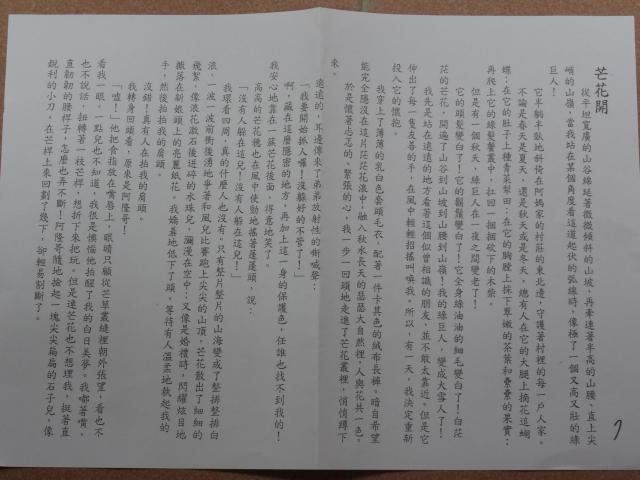 芒花開
從平坦寬廣的山谷綿延著微微傾斜的山坡，再牽連著半高的山腰，直上尖
峭的山嶺，當我站在某個角度看這道起伏的弧線時，像極了一個又高又壯的綠
巨人！
它半躺半臥地斜倚在阿媽家的村莊的東北邊，守護著村裡的每一戶人家。
不論是春天是夏天，還是秋天或是冬天，總有人在它的大腿上摘花追蝴
蝶；在它的肚子上種青菜犁田；在它的胸膛上林下草嫩的茶葉和纍纍的果實；
再爬上它的綠髮鬢叢中，扛回一捆捆砍下的木柴。
但是有一個秋天，綠巨人在一夜之間變老了！
它的頭髮變白了！它的鬍鬚變白了！它全身綠油油的細毛變白了！白茫
茫的芒花，開遍了山谷到山坡到山腰到山嶺！我的綠巨人，變成大雪人了！
我先是站在遠遠的地方看著這個似曾相識的朋友，並不敢太靠近。但是它
伸出了每一隻友善的手，在風中輕輕招搖叫喚我。所以，有一天，我決定重新
投入它的懷抱。
我穿上了薄薄的乳白色套頭毛衣，配著一件卡其色的絨布長褲，暗自希望
能完全隱沒在這片茫茫花浪中！融入秋水長天的瑟瑟大自然裡，人與花共一色。
於是懷著忐忑的、緊張的心，我一步一回頭地走進了芒花叢裡，悄悄蹲下
來。
遠遠的，耳邊傳來了弟弟放射性的嘶喊聲：
「我要開始抓人囉！沒躲好的不管了！」
啊，藏在這麼隱密的地方，再加上這一身的保護色，任誰也找不到我的！
我安心地靠在一莖芒花後面，得意地笑了。
高高的芒花穗也在風中使勁地搖著蓬蓬頭，說：
「沒有人躲在這兒！沒有人躲在這兒！」
我環看四周，真的什麼人也沒有。只有整片整片的山海變成了整排整排白
浪，一波一波前衝後湧地爭著和風兒比賽跑上尖尖的山頂，芒花散出了細細的
幾絮，像浪花激石後迸碎的水珠兒，瀰漫在空中；又像是婚禮時，閃耀炫目地
撒落在新娘頭上的亮麗紙花。我嬌羞地低下了頭，等待有人溫柔地執起我的
手，然後拍拍我的肩頭。
沒錯！真有人在拍我的肩頭。
我轉身回頭看，原來是阿隆哥！
「噓！」他把食指放在嘴唇上，眼睛只顧從芒草叢縫裡朝外張望，看也不
看我一眼，一點兒也不知道，我很是懊惱他拍醒了我的白日美夢。我嘟著嘴，
也不說話，扭轉著一枝芒桿，想折下來把玩。但是連芒花也不想理我，挺著直
直韌韌的腰桿子，怎麼也弄不斷！阿隆哥隨地撿起一塊尖尖扁扁的石子兒，像
銳利的小刀，在芒桿上來回劃了幾下，卻輕易割斷了。
7